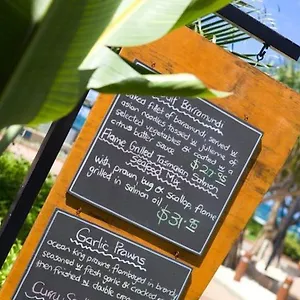 Barramundi
Baked fillet of barramundi, served w
Asian noodles tossed w julienne of
selected vegetables & coated
citrus butter sauce $27.5
Flame Grilled Tasmanian Salmon
Seafood Mix
with prawn, bug & scallop, flame
grilled in salmon oil $31.5
Garlic Prawns
ocean king prawns flambéed in brandy
seasoned w fresh garlic & cracked
then finished w double cream
Curry